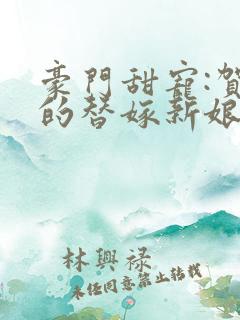 豪門甜寵:賀
的替嫁新娘
林興祿
未经同意禁止转载